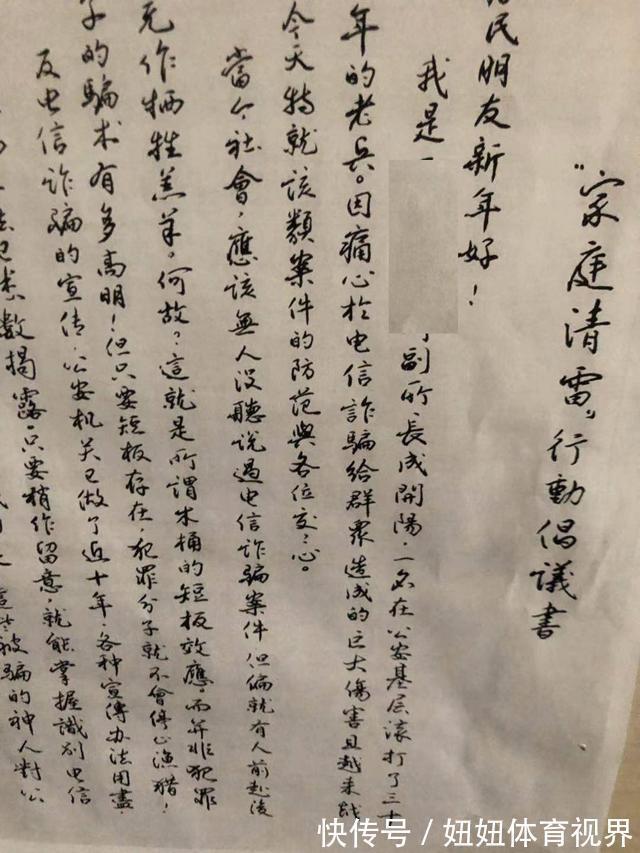 “家庭清雷”行動倡議書
民朋友新年好！
我是
副所長成開陽，一名在公安基层滚打了三十
年的老兵。因痛心於电信詐騙給群衆造成的巨大傷害且越来越
今天特就該類案件的防范與各位交交心。
當今社會，應該無人没聽説過电信诈骗案件但偏就有人前赴後
作牺牲羔羊。何故？這就是所謂木桶的短板效應。而并非犯罪
子的騙术有多高明！但只要短板存在，犯罪分子就不會停止渔猎！
反电信诈骗的宣传，公安机关已做了近十年，各种宣傳办法用盡，
已悉数揭露，只要稍作留意，就能掌握識别电信
這些被騙的神人對公
快传号／妞妞体育视界